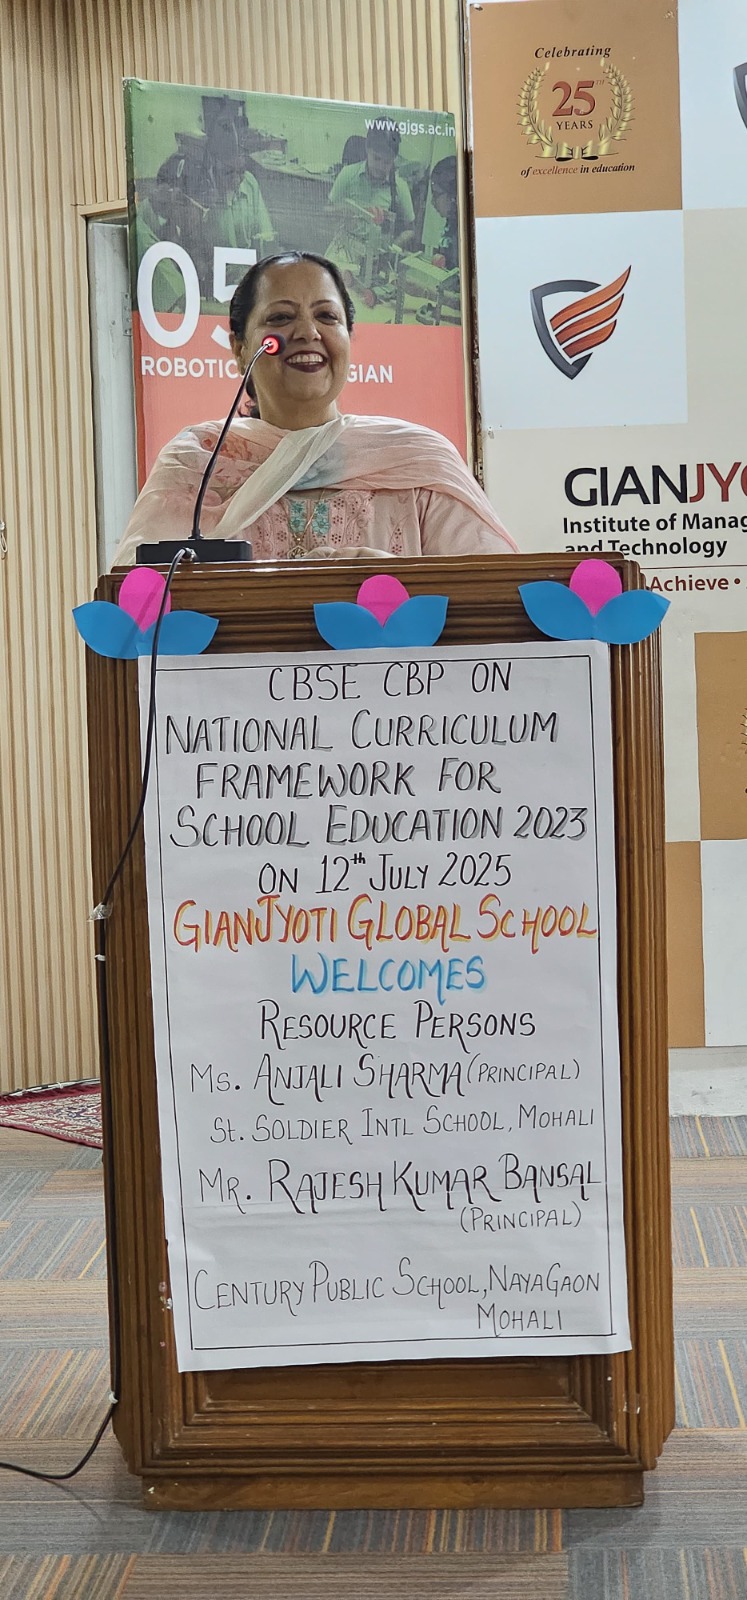 Celebrating
25TH
YEARS
of excellence in education
www.gjgs.ac.in
05
GIAN
GIANJY
Institute of Manag
and Technology
Achieve •
CBSE CBP ON
NATIONAL CURRICULUM
FRAMEWORK FOR
SCHOOL EDUCATION 2023
ON 12th JULY 2025
GIANJYOTI GLOBAL SCHOOL
WELCOMES
RESOURCE PERSONS
MS. ANJALI SHARMA (PRINCIPAL)
ST. SOLDIER INTL SCHOOL, MOHALI
MR. RAJESH KUMAR BANSAL
(PRINCIPAL)
CENTURY PUBLIC SCHOOL, NAYAGAON
MOHALI